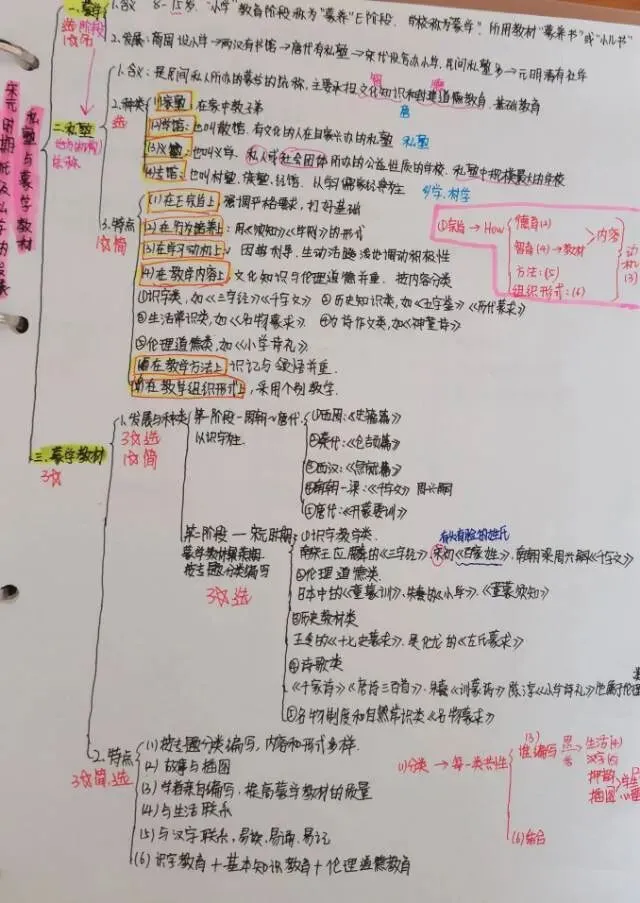 私塾与蒙学教材
一.蒙学
选 阶段
1.含义 8-15岁."小学"教育阶段称为"蒙养"阶段. 学校称为蒙学. 所用教材"蒙养书"或"小儿书"
2.发展: 商周设小学→两汉有书馆→唐代有私塾→宋代设官办小学,民间私塾多→元明清有社学
二.私塾
总称
1.含义: 是民间私人所办的蒙学的总称, 主要承担文化知识和伦理道德教育. 基础教育
2.种类
选
(1)家塾: 在家中教子弟
(2)学馆: 也叫散馆. 有文化的人在自家兴办的私塾 私塾
(3)义塾: 也叫义学. 私人或社会团体所办的公益性质的学校. 私塾中规模最大的学校
也叫村塾、族塾、经馆. 以学儒家经典为主
3.特点
1次简
(1)在 强调严格要求, 打好基础
用《须知》《学则》的形式
因势利导, 生动活泼 调动积极性
(4)在教学内容上 文化知识与伦理道德并重. 按内容分类
①识字类, 如《三字经》《千字文》 ②历史知识类, 如
③生活常识类, 如《名物蒙求》 如《神童诗》
⑤伦理道德类. 如《小学诗礼》
在教学方法上 识记与领悟并重
在教学组织形式上, 采用个别教学
→How
德育(2)
智育(4)→教材
方法:(5)
组织形式:(6)
内容
(3)
三.蒙学教材
3次
1.发展与种类
3次选
1次简
第一阶段—周朝~唐代
以识字为主
①西周:《史籀篇》
②秦代:《仓颉篇》
③西汉:《急就篇》
《千字文》 周兴嗣
唐代:《开蒙要训》
宋元时期
按专题分类编写
3次选
①识字教学类
王应麟的《三字经》. 宋初《百家姓》. 南朝梁周兴嗣《千字文》
②伦理道德类
吕本中的《童蒙训》. 朱熹的《小学》.《童蒙须知》
③历史教材类
王令的《十七史蒙求》. 吴化龙的《左氏蒙求》
④诗歌类
《千家诗》《唐诗三百首》. 朱熹《训蒙诗》 陈淳《小学诗礼》
⑤名物制度和自然常识类《名物蒙求》
2.特点
3次简.选
(1)按专题分类编写, 内容和形式多样
(2)故事与插图
(3)学者亲自编写, 提高蒙学教材的质量
(4)与生活联系
(5)与汉字联系, 易读、易诵、易记
(6)识字教育+基本知识教育+伦理道德教育
(1)分类→每一类共性
(3)
谁编写
生活(4)
汉字(5)
押韵
插图
(6)结合